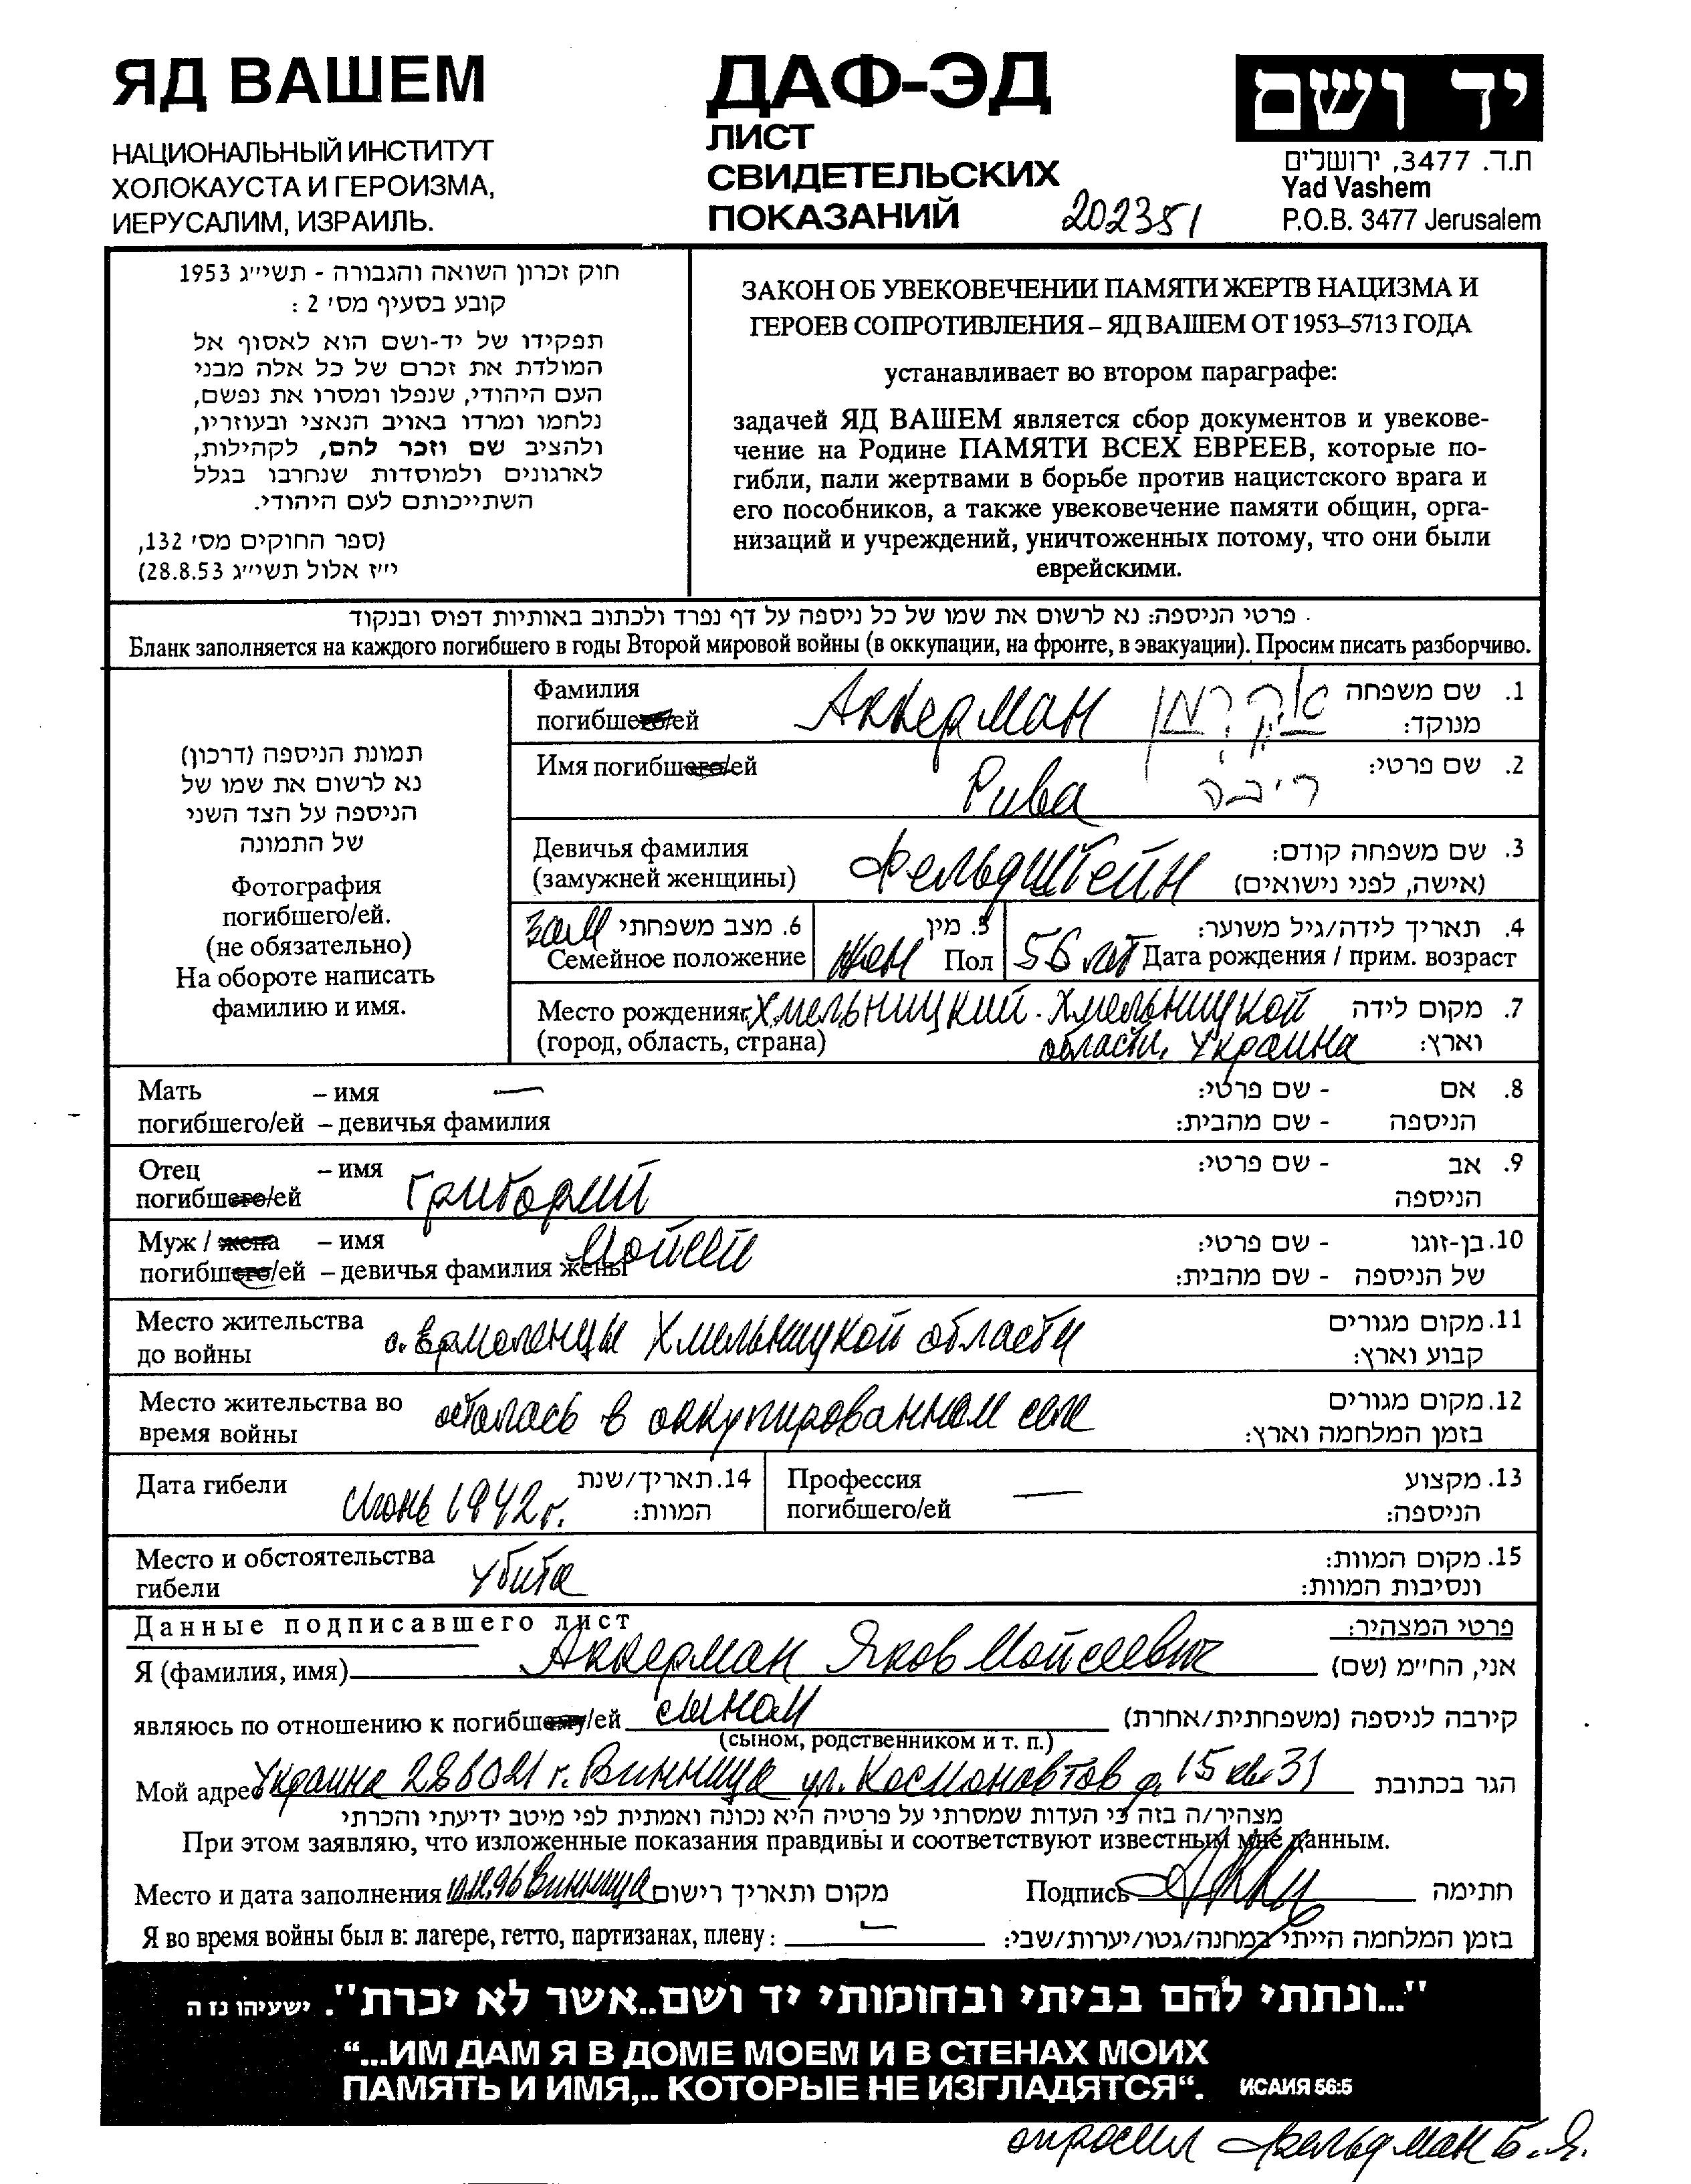 ЯД ВАШЕМ
НАЦИОНАЛЬНЫЙ ИНСТИТУТ
ХОЛОКАУСТА И ГЕРОИЗМА,
ИЕРУСАЛИМ, ИЗРАИЛЬ.
ДАФ-ЭД
ЛИСТ
СВИДЕТЕЛЬСКИХ
ПОКАЗАНИЙ
202351
יד ושם
ת.ד. 3477, ירושלים
Yad Vashem
P.O.B. 3477 Jerusalem
חוק זכרון השואה והגבורה - תשי״ג 1953
קובע בסעיף מס׳ 2 :
תפקידו של יד-ושם הוא לאסוף אל
המולדת את זכרם של כל אלה מבני
העם היהודי, שנפלו ומסרו את נפשם,
נלחמו ומרדו באויב הנאצי ובעוזריו,
ולהציב שם וזכר להם, לקהילות,
לארגונים ולמוסדות שנחרבו בגלל
השתייכותם לעם היהודי.
(ספר החוקים מס׳ 132,
י״ז אלול תשי״ג 28.8.53)
ЗАКОН ОБ УВЕКОВЕЧЕНИИ ПАМЯТИ ЖЕРТВ НАЦИЗМА И
ГЕРОЕВ СОПРОТИВЛЕНИЯ – ЯД ВАШЕМ ОТ 1953–5713 ГОДА
устанавливает во втором параграфе:
задачей ЯД ВАШЕМ является сбор документов и увекове-
чение на Родине ПАМЯТИ ВСЕХ ЕВРЕЕВ, которые по-
гибли, пали жертвами в борьбе против нацистского врага и
его пособников, а также увековечение памяти общин, орга-
низаций и учреждений, уничтоженных потому, что они были
еврейскими.
פרטי הניספה: נא לרשום את שמו של כל ניספה על דף נפרד ולכתוב באותיות דפוס ובנקוד
Бланк заполняется на каждого погибшего в годы Второй мировой войны (в оккупации, на фронте, в эвакуации). Просим писать разборчиво.
תמונת הניספה (דרכון)
נא לרשום את שמו של
הניספה על הצד השני
של התמונה
Фотография
погибшего/ей.
(не обязательно)
На обороте написать
фамилию и имя.
Фамилия Аккерман אקרמן 1. שם משפחה
погибшего/ей מנוקד:
Имя погибшего/ей Рива ריבה 2. שם פרטי:
Девичья фамилия Фельдштейн 3. שם משפחה קודם:
(замужней женщины) (אישה, לפני נישואים)
зам 6. מצב משפחתי 5. מין 4. תאריך לידה/גיל משוער:
Семейное положение жен Пол 56 лет Дата рождения / прим. возраст
Место рождения г. Хмельницкий. Хмельницкой 7. מקום לידה
(город, область, страна) области, Украина וארץ:
Мать – имя — - שם פרטי: 8. אם
погибшего/ей – девичья фамилия - שם מהבית: הניספה
Отец – имя Григорий - שם פרטי: 9. אב
погибшего/ей הניספה
Муж / жена – имя Мойсей - שם פרטי: 10. בן-זוגו
погибшего/ей – девичья фамилия жены - שם מהבית: של הניספה
Место жительства с. Ермоленцы Хмельницкой области 11. מקום מגורים
до войны קבוע וארץ:
Место жительства во осталась в оккупированном селе 12. מקום מגורים
время войны בזמן המלחמה וארץ:
Дата гибели Июнь 1942 г. 14. תאריך/שנת Профессия — 13. מקצוע
המוות: погибшего/ей הניספה:
Место и обстоятельства убита 15. מקום המוות:
гибели ונסיבות המוות:
Данные подписавшего лист פרטי המצהיר:
Я (фамилия, имя) Аккерман Яков Мойсеевич אני, הח״מ (שם)
являюсь по отношению к погибшему/ей сыном קירבה לניספה (משפחתית/אחרת)
(сыном, родственником и т. п.)
Мой адрес Украина 288021 г. Винница ул. Космонавтов д. 15 кв 31 הגר בכתובת
מצהיר/ה בזה כי העדות שמסרתי על פרטיה היא נכונה ואמתית לפי מיטב ידיעתי והכרתי
При этом заявляю, что изложенные показания правдивы и соответствуют известным мне данным.
Место и дата заполнения 10.12.96 Винница מקום ותאריך רישום Подпись חתימה
Я во время войны был в: лагере, гетто, партизанах, плену : — בזמן המלחמה הייתי במחנה/גטו/יערות/שבי:
"...ונתתי להם בביתי ובחומותי יד ושם..אשר לא יכרת". ישעיהו נז ה
“...ИМ ДАМ Я В ДОМЕ МОЕМ И В СТЕНАХ МОИХ
ПАМЯТЬ И ИМЯ,.. КОТОРЫЕ НЕ ИЗГЛАДЯТСЯ“. ИСАИЯ 56:5
опросил Фельдман Б. Я.